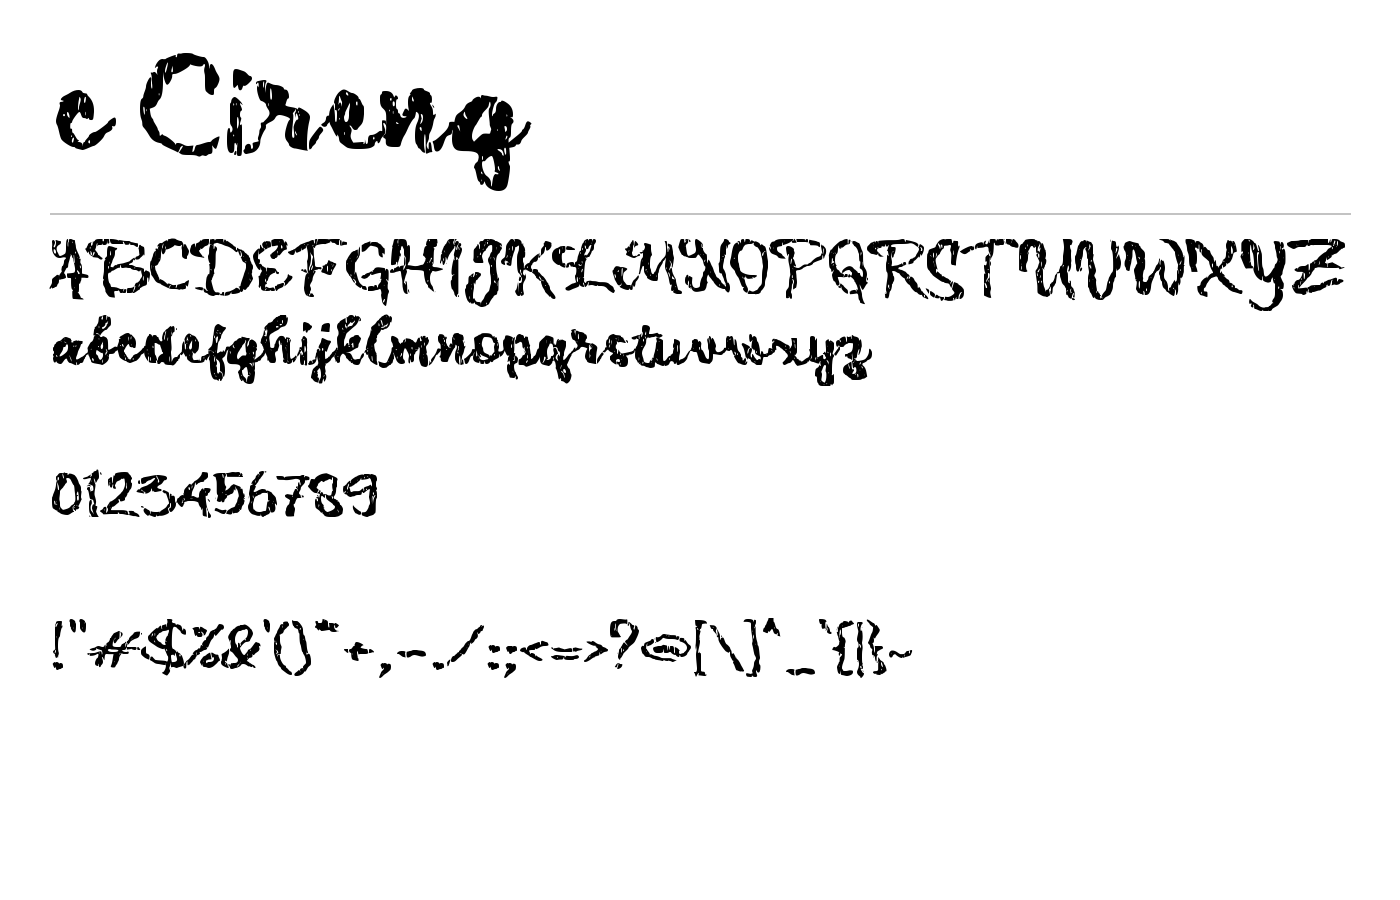 c Cireng
ABCDEFGHIJKLMNOPQRSTUVWXYZ
abcdefghijklmnopqrstuvwxyz
0123456789
!"#$%&'()*+,-./:;<=>?@[\]^_`{|}~